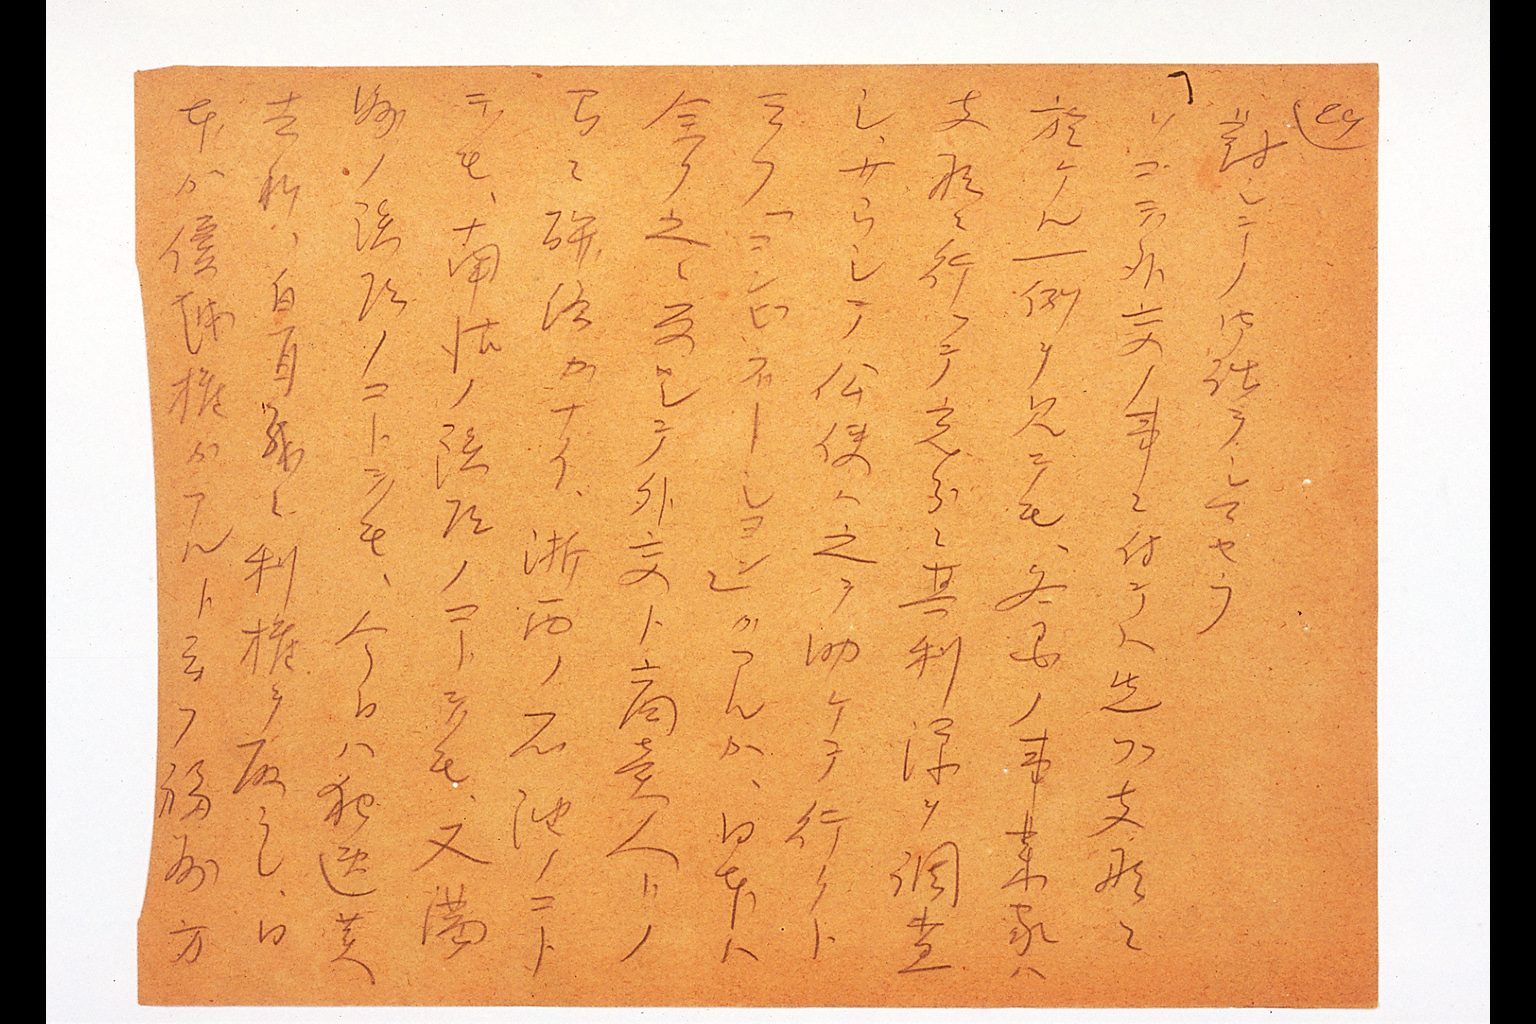 對シテノ御話ヲシマセウ
ソコテ外交ノ事ニ付テハ先ツ支那ニ
於ケル一例ヲ見テモ、各国ノ事業家ハ
支那ニ行ツテ充分ニ其利源ヲ調査
シ、サウシテ公使ハ之ヲ助ケテ行クト
云フ「コンビネーシヨン」ガアルカ、日本ハ
全ク之ニ反シテ外交ト商売人トノ
間ニ聯絡カナイ、浙西ノ石油ノコト
テモ、南清ノ鉄道ノコトテモ、又満
州ノ鉄道ノコトテモ、今日ハ独逸英
吉利、白耳義ニ利権ヲ取ラレ、日
本カ優越権カアルト云フ福州方